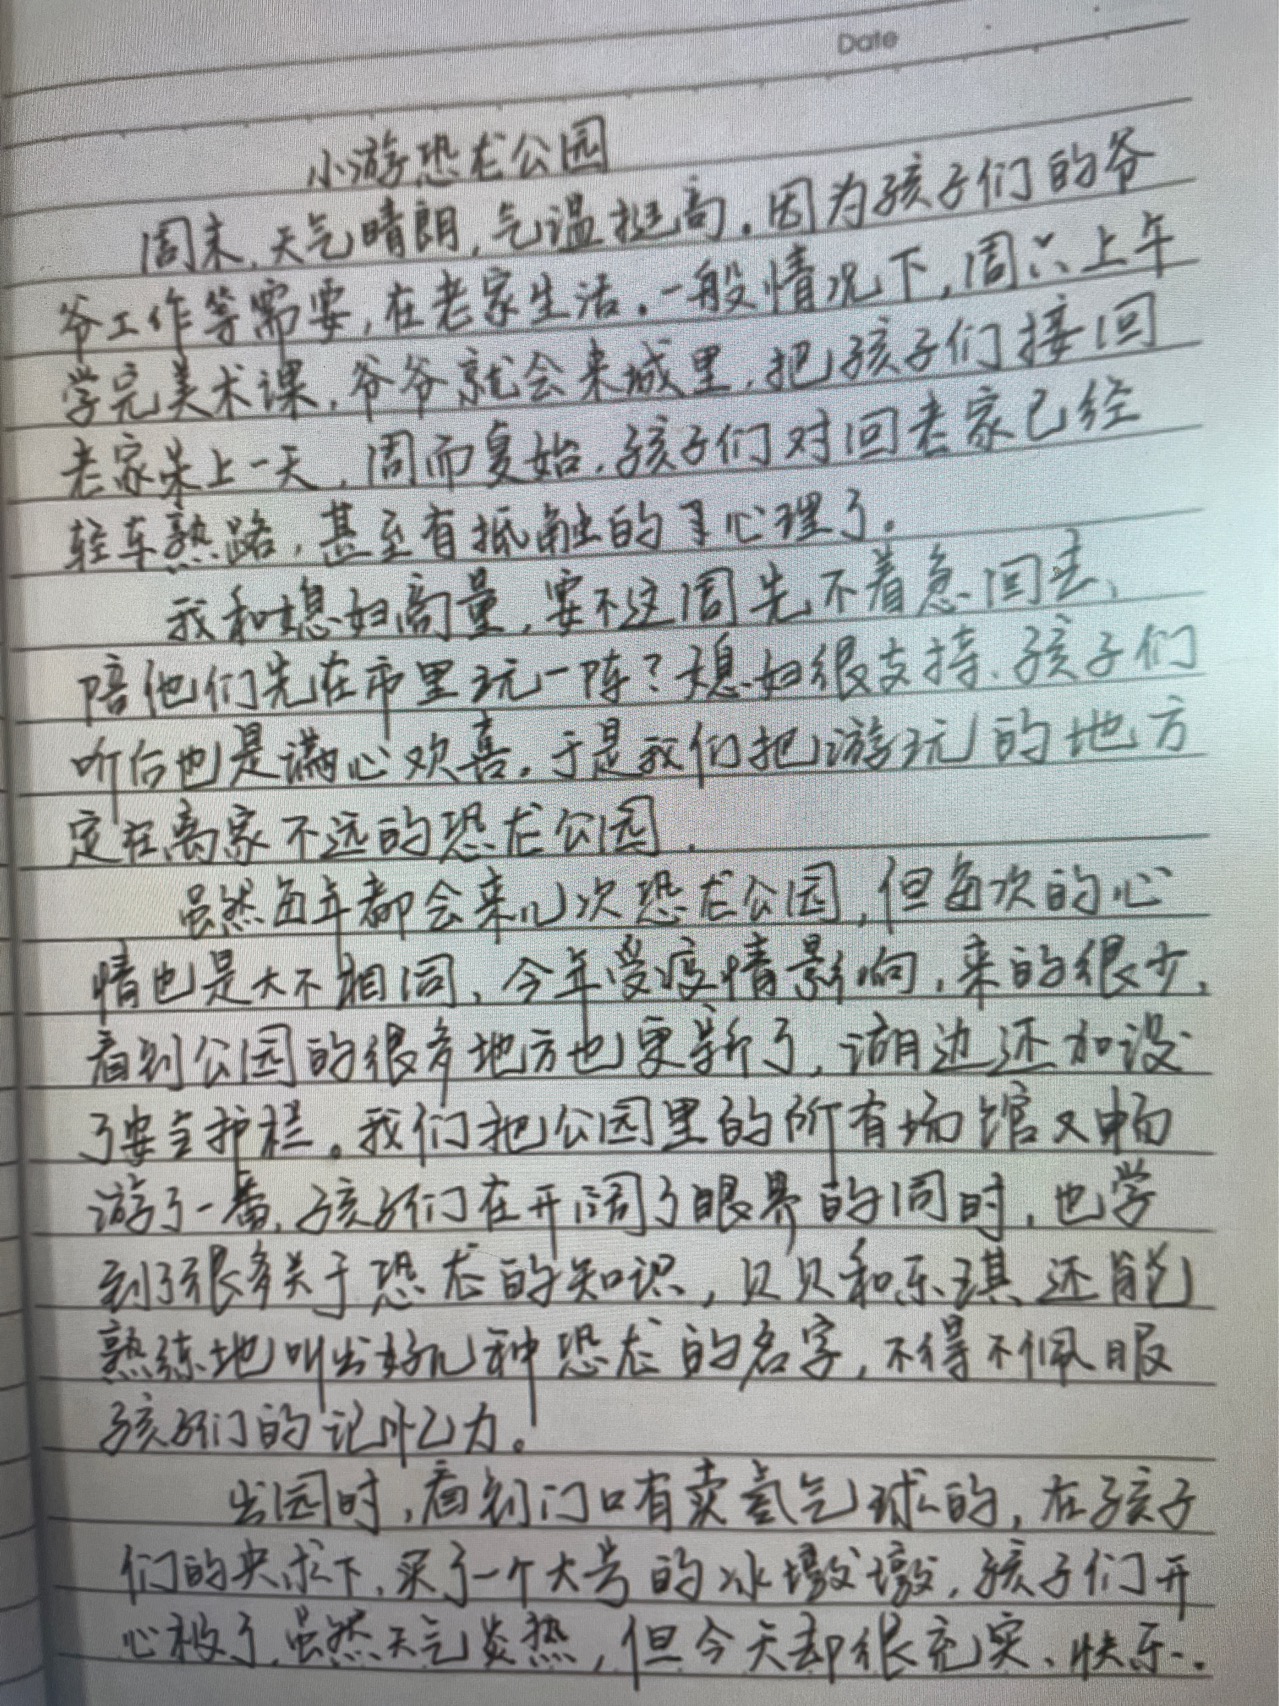 Date
小游恐龙公园
周末,天气晴朗,气温挺高。因为孩子们的爷
爷工作等需要,在老家生活。一般情况下,周六上午
学完美术课,爷爷就会来城里,把孩子们接回
老家呆上一天,周而复始,孩子们对回老家已经
轻车熟路,甚至有抵触的心理了。
我和媳妇商量,要不这周先不着急回去,
陪他们先在市里玩一阵?媳妇很支持、孩子们
听后也是满心欢喜。于是我们把游玩的地方
定在离家不远的恐龙公园.
虽然每年都会来几次恐龙公园,但每次的心
情也是大不相同、今年受疫情影响,来的很少,
看到公园的很多地方也更新了,湖边还加设
了安全护栏。我们把公园里的所有场馆又畅
游了一番,孩子们在开阔了眼界的同时,也学
到了很多关于恐龙的知识,贝贝和乐琪还能
熟练地叫出好几种恐龙的名字,不得不佩服
孩子们的记忆力。
出园时,看到门口有卖氢气球的,在孩子
们的央求下,买了一个大号的冰墩墩,孩子们开
心极了,虽然天气炎热,但今天却很充实、快乐.